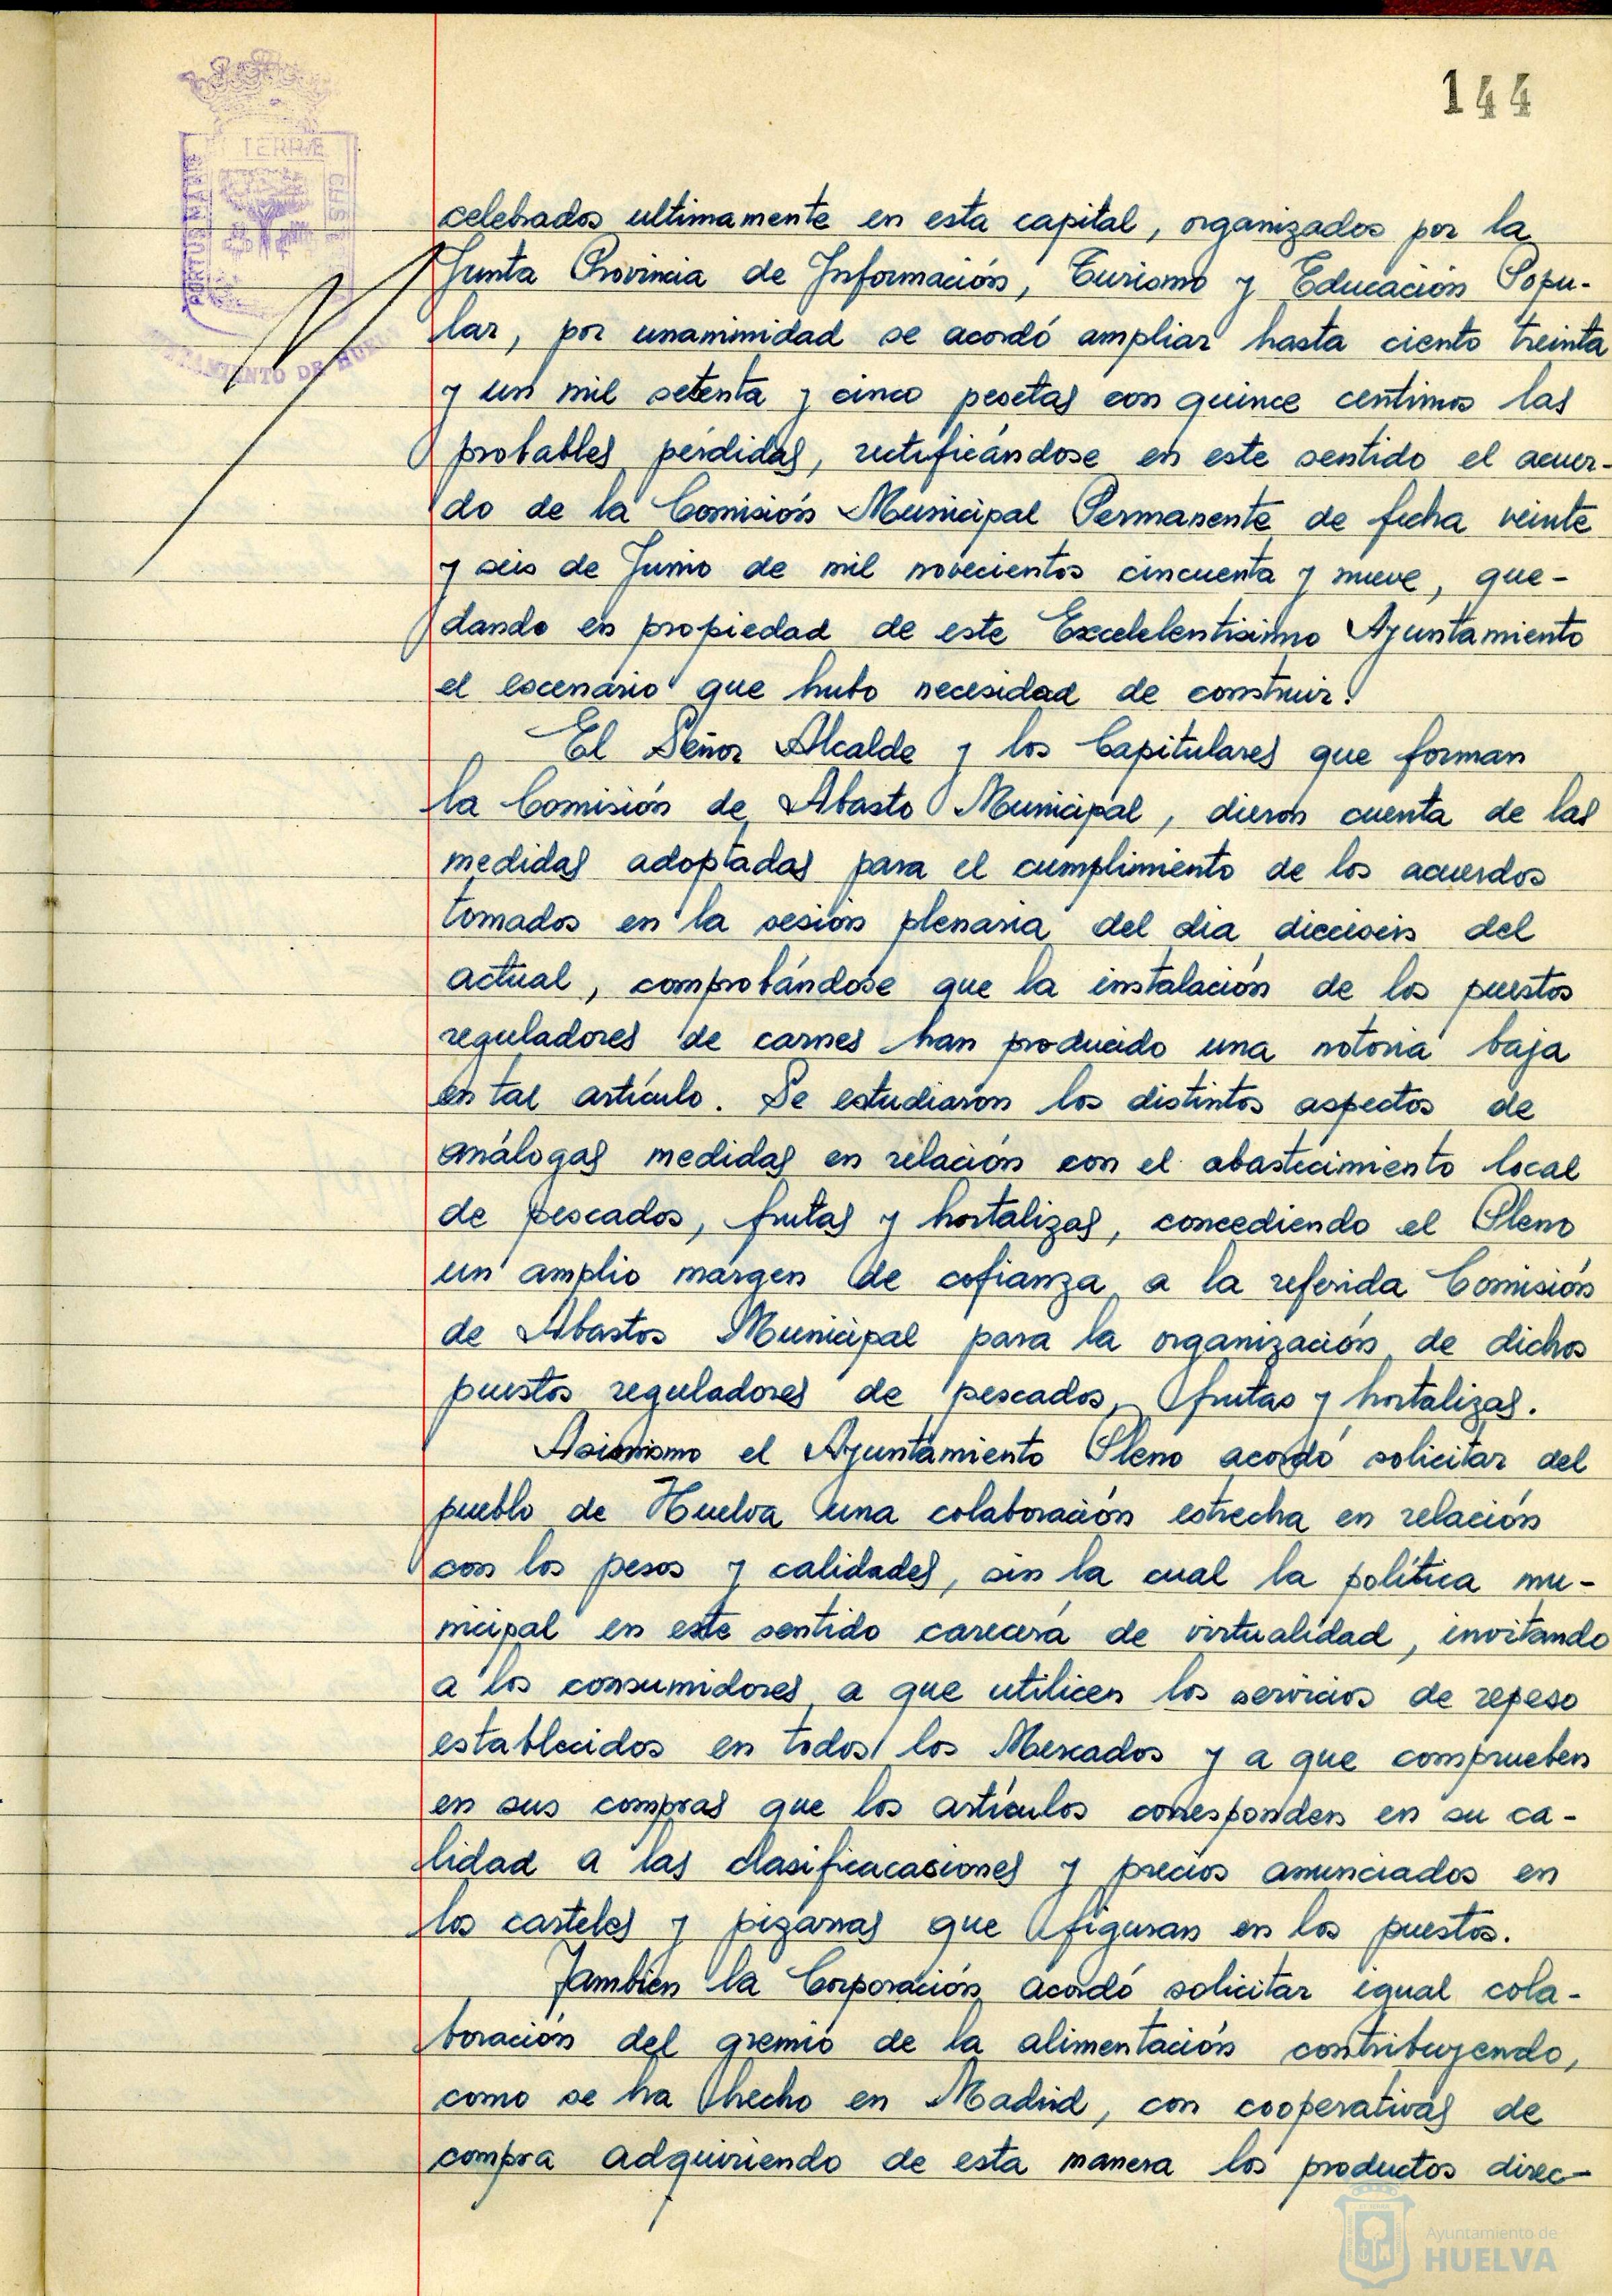 144
TERRÆ
PORTUS MARIS
AYUNTAMIENTO DE HUELVA
celebrados ultimamente en esta capital, organizados por la
Junta Provincia de Información, Turismo y Educación Popu-
lar, por unanimidad se acordó ampliar hasta ciento treinta
y un mil setenta y cinco pesetas con quince centimos las
probables pérdidas, rectificándose en este sentido el acuer-
do de la Comisión Municipal Permanente de fecha veinte
y seis de Junio de mil novecientos cincuenta y nueve, que-
dando en propiedad de este Excelelentisimo Ayuntamiento
el escenario que hubo necesidad de construir.
El Señor Alcalde y los Capitulares que forman
la Comisión de Abasto Municipal, dieron cuenta de las
medidas adoptadas para el cumplimiento de los acuerdos
tomados en la sesión plenaria del dia dieciseis del
actual, comprobándose que la instalación de los puestos
reguladores de carnes han producido una notoria baja
en tal artículo. Se estudiaron los distintos aspectos de
análogas medidas en relación con el abastecimiento local
de pescados, frutas y hortalizas, concediendo el Pleno
un amplio margen de cofianza a la referida Comisión
de Abastos Municipal para la organización de dichos
puestos reguladores de pescados, frutas y hortalizas.
Asimismo el Ayuntamiento Pleno acordó solicitar del
pueblo de Huelva una colaboración estrecha en relación
con los pesos y calidades, sin la cual la política mu-
nicipal en este sentido carecerá de virtualidad, invitando
a los consumidores a que utilicen los servicios de repeso
establecidos en todos los Mercados y a que comprueben
en sus compras que los artículos corresponden en su ca-
lidad a las clasificacasiones y precios anunciados en
los carteles y pizarras que figuran en los puestos.
Tambien la Corporación acordó solicitar igual cola-
boración del gremio de la alimentación contribuyendo,
como se ha hecho en Madrid, con cooperativas de
compra adquiriendo de esta manera los productos direc-
Ayuntamiento de
HUELVA